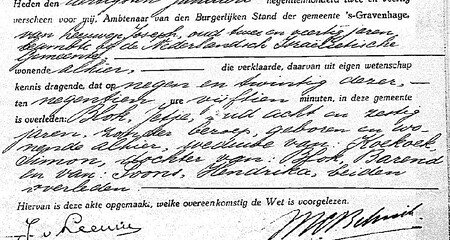 Heden den dertigsten Januari negentienhonderd twee en veertig
verscheen voor mij, Ambtenaar van den Burgerlijken Stand der gemeente 's-Gravenhage,
van Leeuwen Joseph, oud twee en veertig jaren
beambte bij de Nederlandsch Israëlietische
Gemeente
wonende alhier, die verklaarde, daarvan uit eigen wetenschap
kennis dragende, dat op negen en twintig dezer,
ten negentien ure vijftien minuten, in deze gemeente
is overleden: Blok, Betje, oud acht en zestig
jaren, zonder beroep, geboren en wo-
nende alhier, weduwe van: Koekoek
Simon, dochter van: Blok, Barend
en van: Soons, Hendrika, beiden
overleden.
Hiervan is deze akte opgemaakt, welke overeenkomstig de Wet is voorgelezen.
J. v Leeuwen